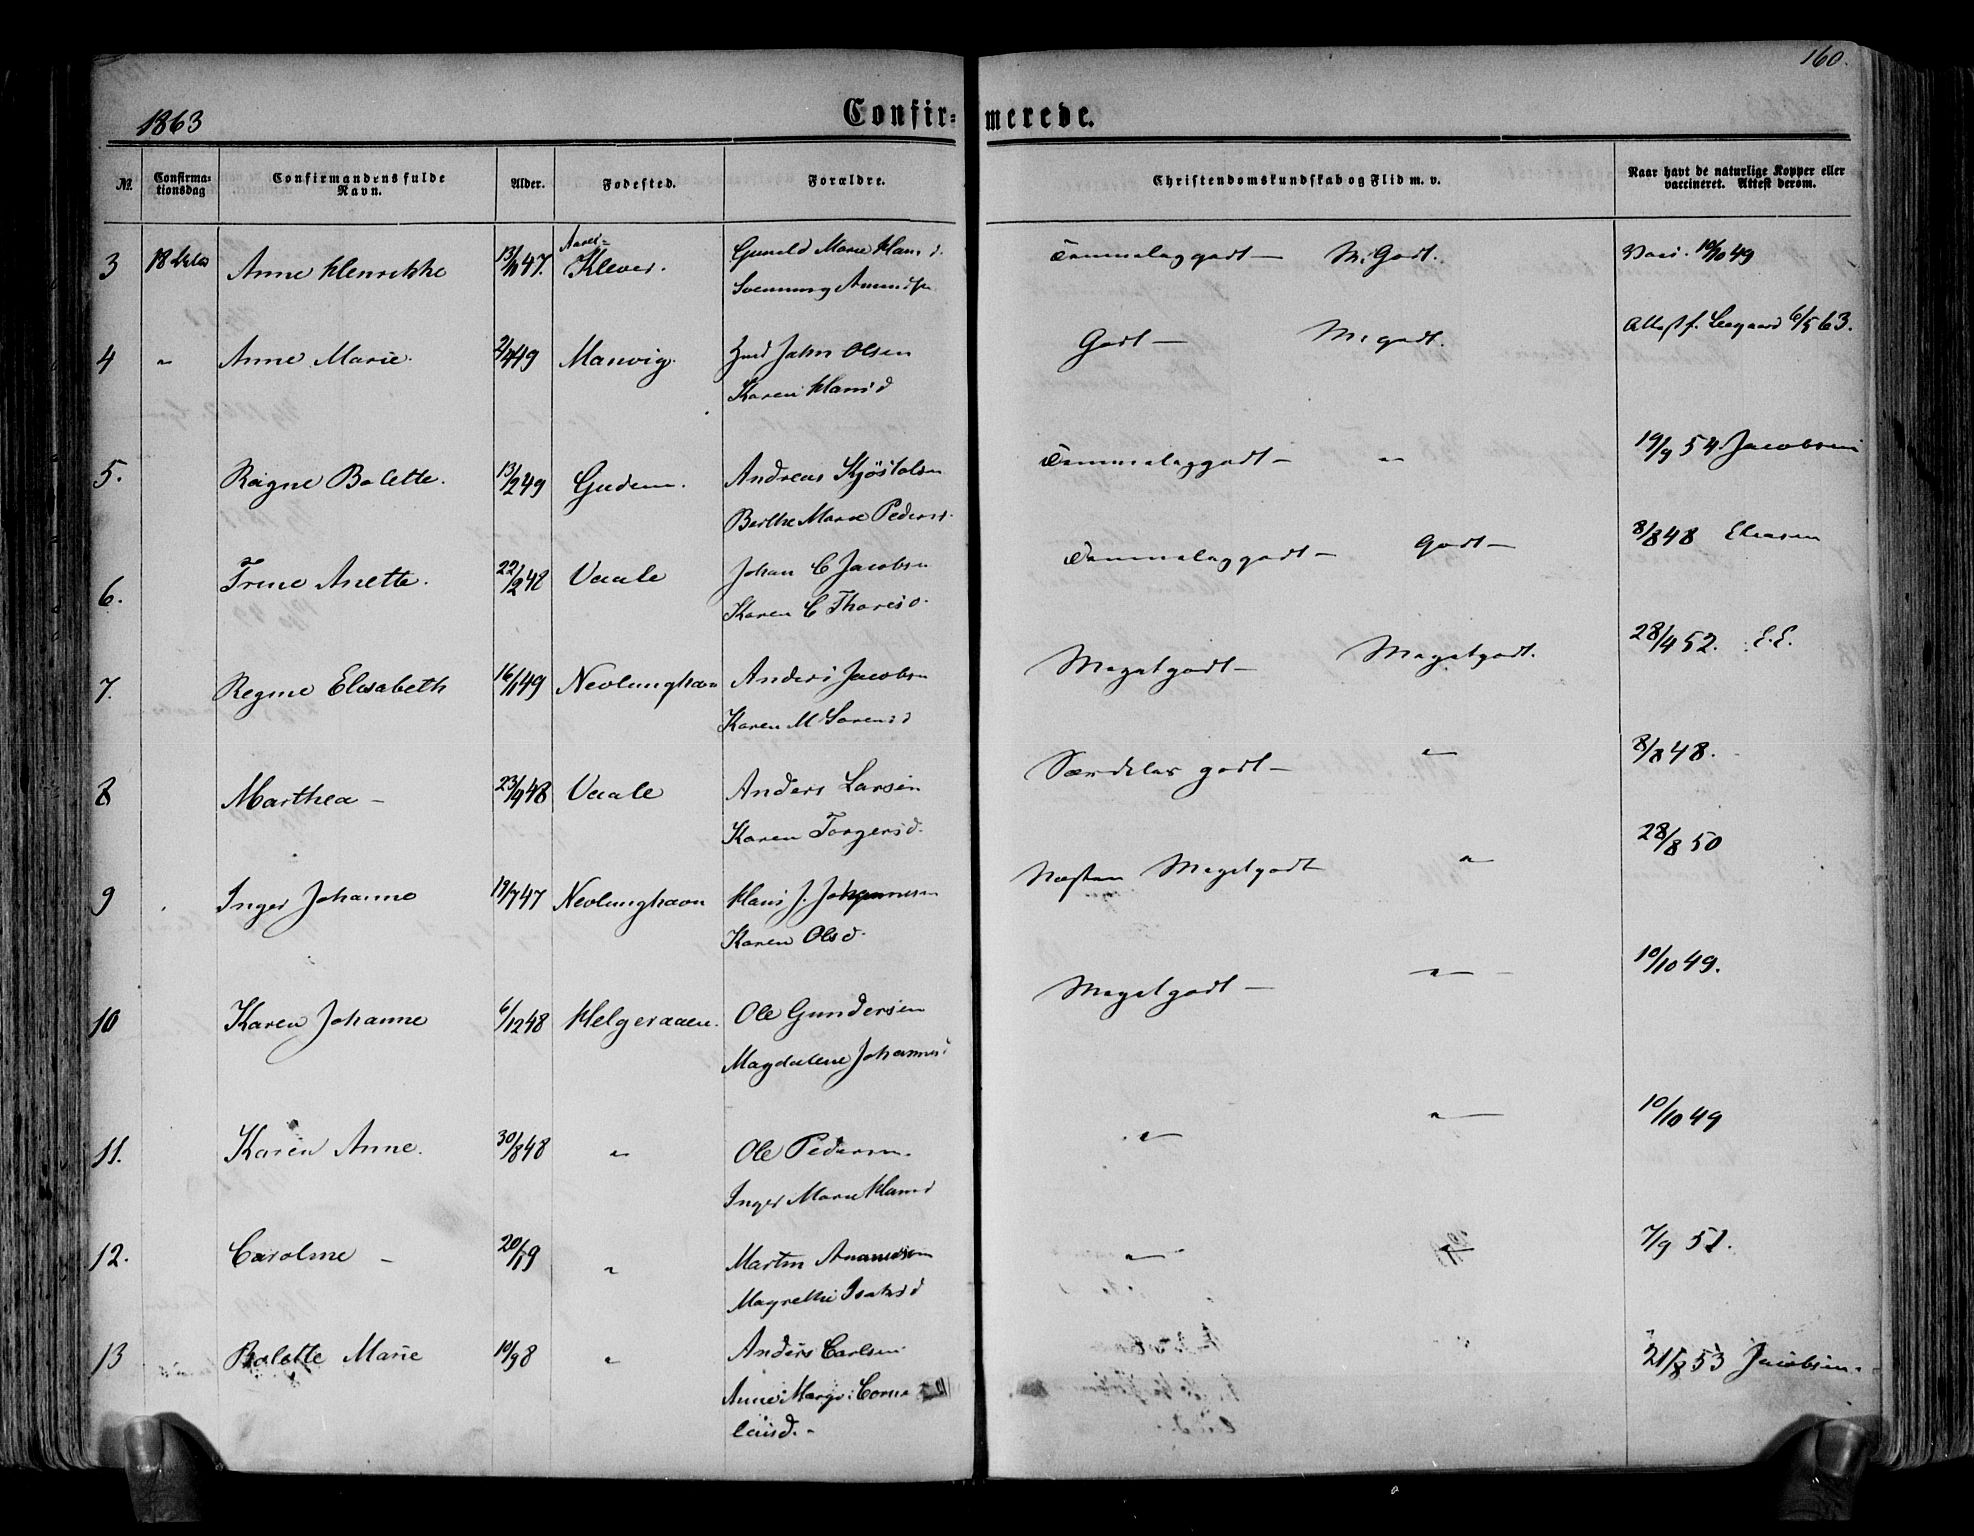 160.
1863 Confir- merede.
No. Confirma- tionsdag Confirmandens fulde Navn. Alder. Fødested. Forældre. Christendomskundskab og Flid m. v. Naar havt de naturlige Kopper eller vaccineret. Attest derom.
3 18 Anne Henrikke 13/11 47. Klever. Gunild Marie Hansd. Temmelig godt — M. Godt. Vacc. 10/10 49
Svenning Amundsen
4 " Anne Marie. 49 Manvig. John Olsen Godt — M. godt. Attest f. Leegaard 6/5 63.
Karen Hansd
5. Ragne Bolette. 13/2 49 Gudem. Andreas Kjøstolsen Temmelig godt — " 19/9 54. Jacobsen
Berthe Marie Pedersd.
6. Trine Anette. 22/2 48 Vaale Johan C Jacobsen Temmelig godt — Godt — 8/8 48 Eliasen
Karen C Thoresd.
7. Regine Elisabeth 16/1 49 Nevlunghavn Anders Jacobsen Meget godt — Meget godt. 28/4 52. E.E.
Karen M. Sørensd
8 Marthea — 23/9 48 Vaale Anders Larsen Særdeles godt — " 8/8 48.
Karen Torgersd.
9 Inger Johanne 19/7 47 Nevlunghavn Hans J. Johannesen Næsten Meget godt " 28/8 50
Karen Olsd.
10 Karen Johanne 6/12 48 Helgeraaen. Ole Gundersen Meget godt — " 10/10 49.
Magdalene Johannesd
11. Karen Anne. 30/8 48 " Ole Pedersen. " " 10/10 49
Inger Marie Hansd
12. Caroline — 20/1 9 " Martin Amundsen " " 7/9 51.
Magrethe Isaksd
13 Bolette Marie 10/9 8 " Anders Carlsen " 21/8 53 Jacobsen.
Anne Margr: Corne
liusd. -